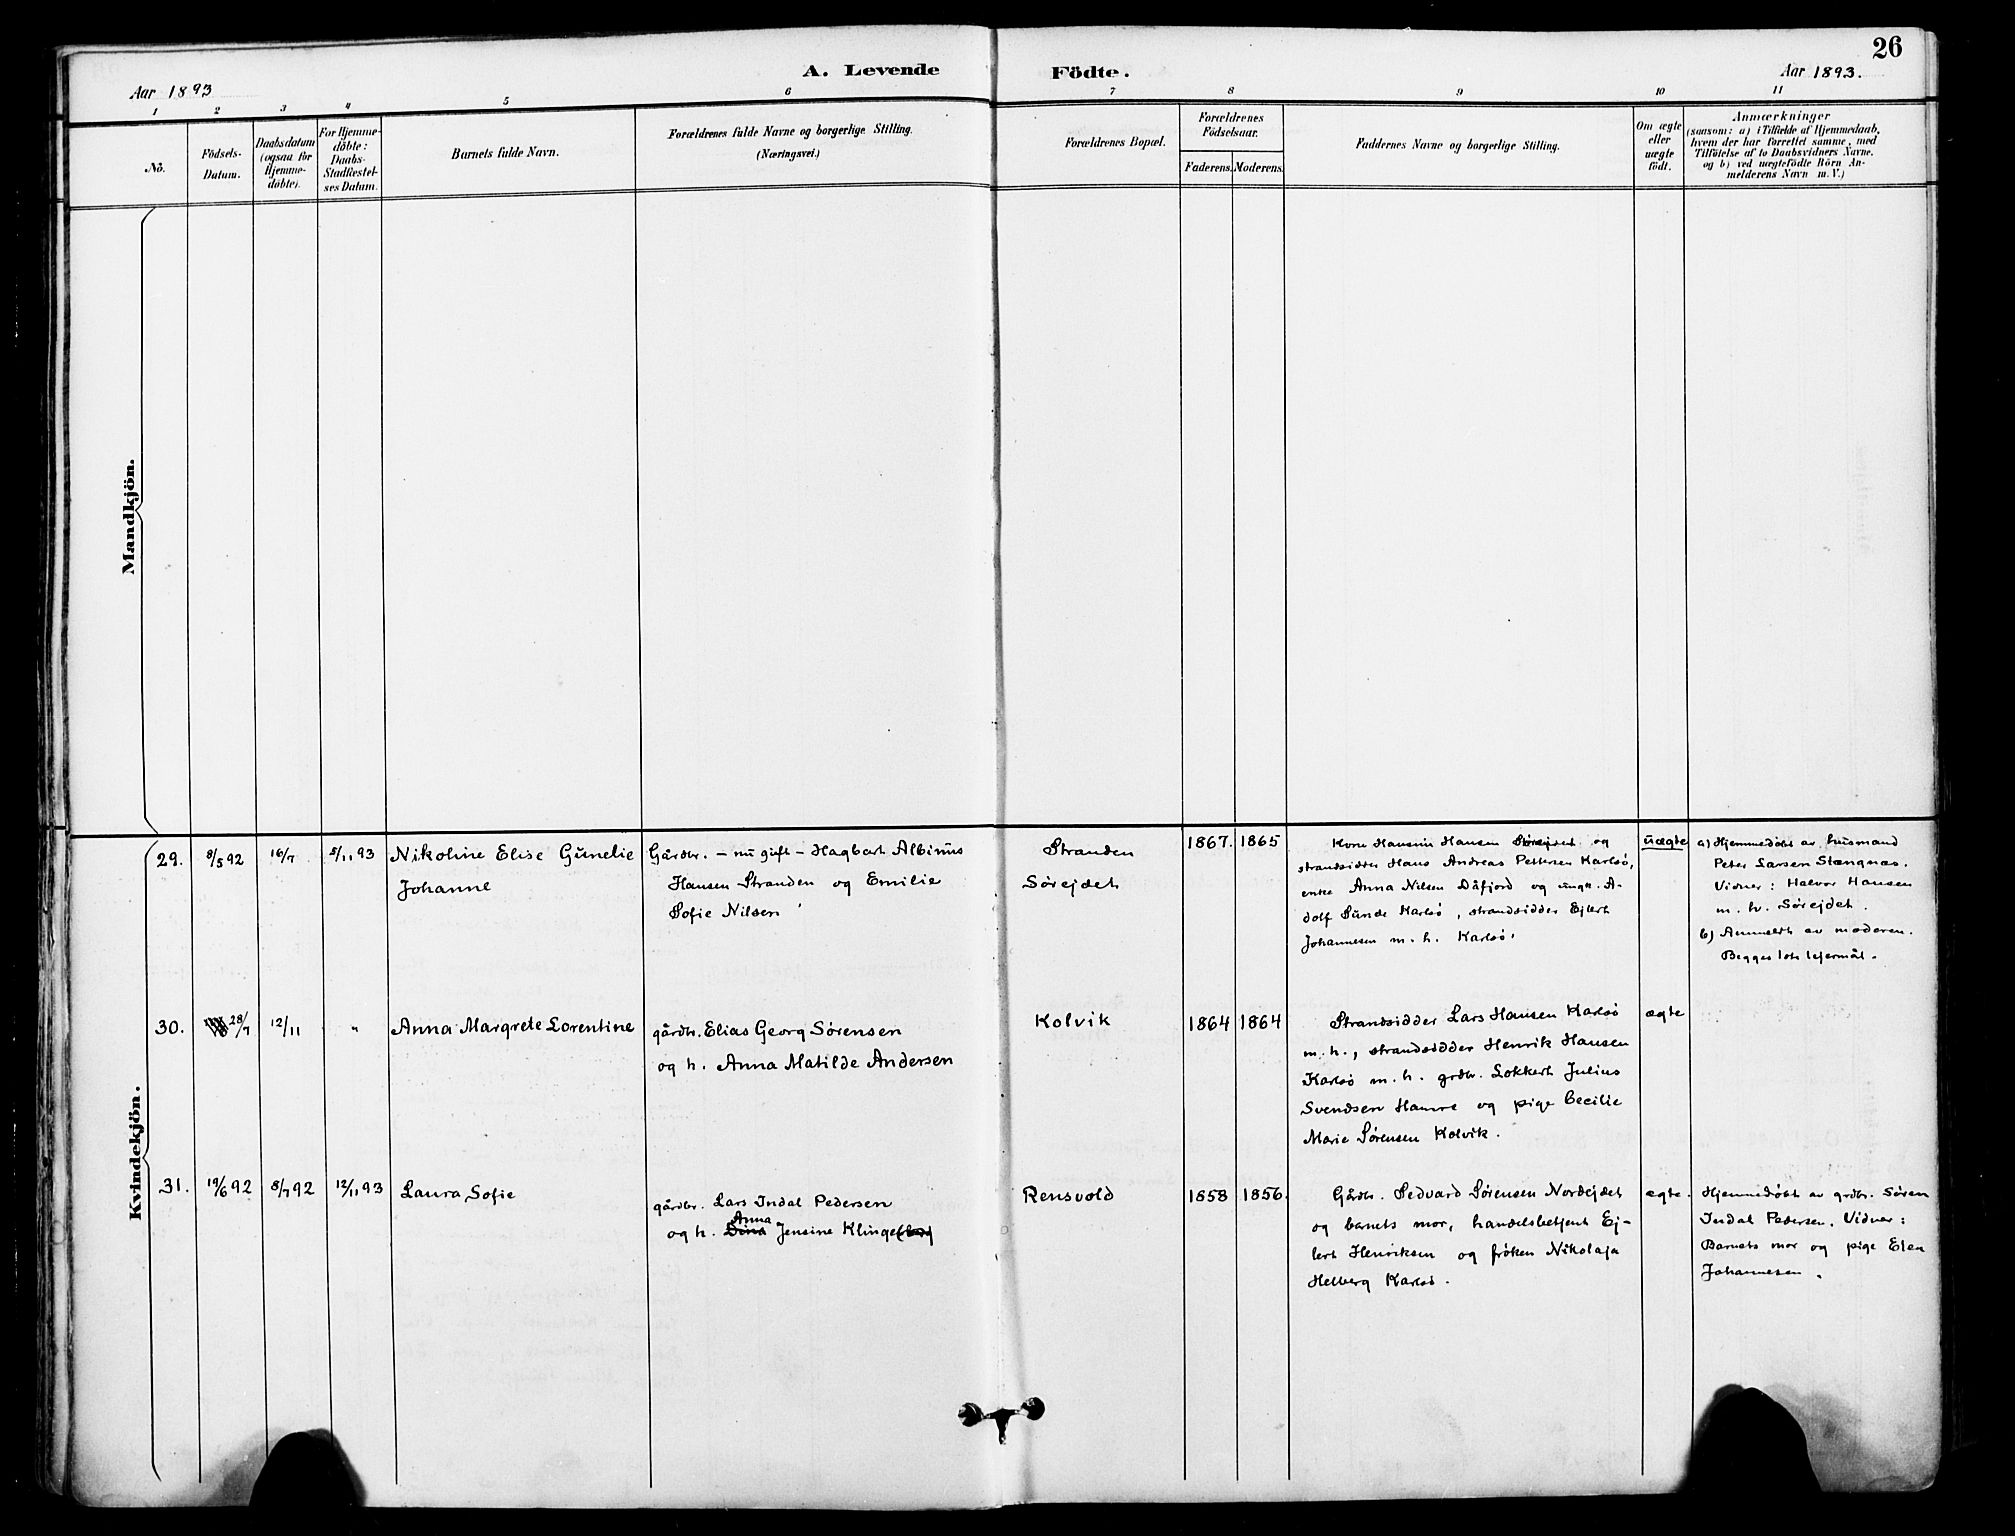 26
A. Levende Födte.
Aar 1893
Aar 1893.
1 2 3 4 5 6 7 8 9 10 11
No.
Födsels-
Datum.
Daabsdatum
(ogsaa for
Hjemme-
döbte).
For Hjemme-
döbte:
Daabs-
Stadfæstel-
ses Datum.
Barnets fulde Navn.
Forældrenes fulde Navne og borgerlige Stilling.
(Næringsvei.)
Forældrenes Bopæl.
Forældrenes
Födselsaar.
Faderens. Moderens.
Faddernes Navne og borgerlige Stilling.
Om ægte
eller
uægte
födt.
Anmærkninger
(saasom: a) i Tilfælde af Hjemmedaab,
hvem der har forrettet samme, med
Tilföielse af to Daabsvidners Navne,
og b) ved uægtefödte Börn An-
melderens Navn m. V.)
Mandkjön.
Kvindekjön.
29. 8/5 92 16/7 5/11 93
Nikoline Elise Gunelie
Johanne
Gårdbr. – nu gift – Hagbart Albinus
Hansen Stranden og Emilie
Sofie Nilsen
Stranden
Sørejdet
1867. 1865
Kone Hansine Hansen Sørejdet og
strandsidder Hans Andreas Pettersen Karlsø,
enke Anna Nilsen Dåfjord og ungk. A-
dolf Sunde Karlsø, strandsidder Ejlert
Johannesen m. h. Karlsø.
uægte
a) Hjemmedøbt av husmand
Peter Larsen Stangnæs.
Vidner: Halvor Hansen
m. h. Sørejdet.
b) Anmeldt av moderen.
Begges 1ste lejermål.
30. 28/7 12/11 "
Anna Margrete Lorentine
gårdbr. Elias Georg Sørensen
og h. Anna Matilde Andersen
Kolvik
1864 1864
Strandsidder Lars Hansen Karlsø
m. h., strandsidder Henrik Hansen
Karlsø m. h. grdbr. Lokkert Julius
Svendsen Hamre og pige Cecilie
Marie Sørensen Kolvik.
ægte
31. 19/6 92 8/7 92 12/11 93
Laura Sofie
gårdbr. Lars Indal Pedersen
Anna
og h. Dina Jensine Klinge(berg
Rensvold
1858 1856.
Gårdbr. Sedvard Sørensen Nordejdet
og barnets mor, handelsbetjent Ej-
lert Henriksen og frøken Nikolaja
Helberg Karlsø.
ægte.
Hjemmedøbt av grdbr. Søren
Indal Pedersen. Vidner:
Barnets mor og pige Elen
Johannesen.